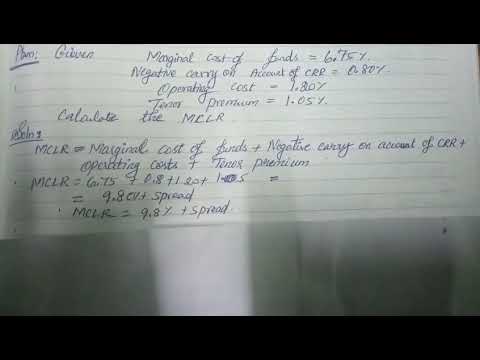 Prob: Given Marginal cost of funds = 6.75%
Negative carry on Account of CRR = 0.80%
Operating cost = 1.20%
Tenor premium = 1.05%
Calculate the MCLR.
Soln:
MCLR = Marginal cost of funds + Negative carry on account of CRR +
operating costs + Tenor premium
MCLR = 6.75 + 0.8 + 1.20 + 1.05 =
= 9.80% + Spread
MCLR = 9.8% + Spread.